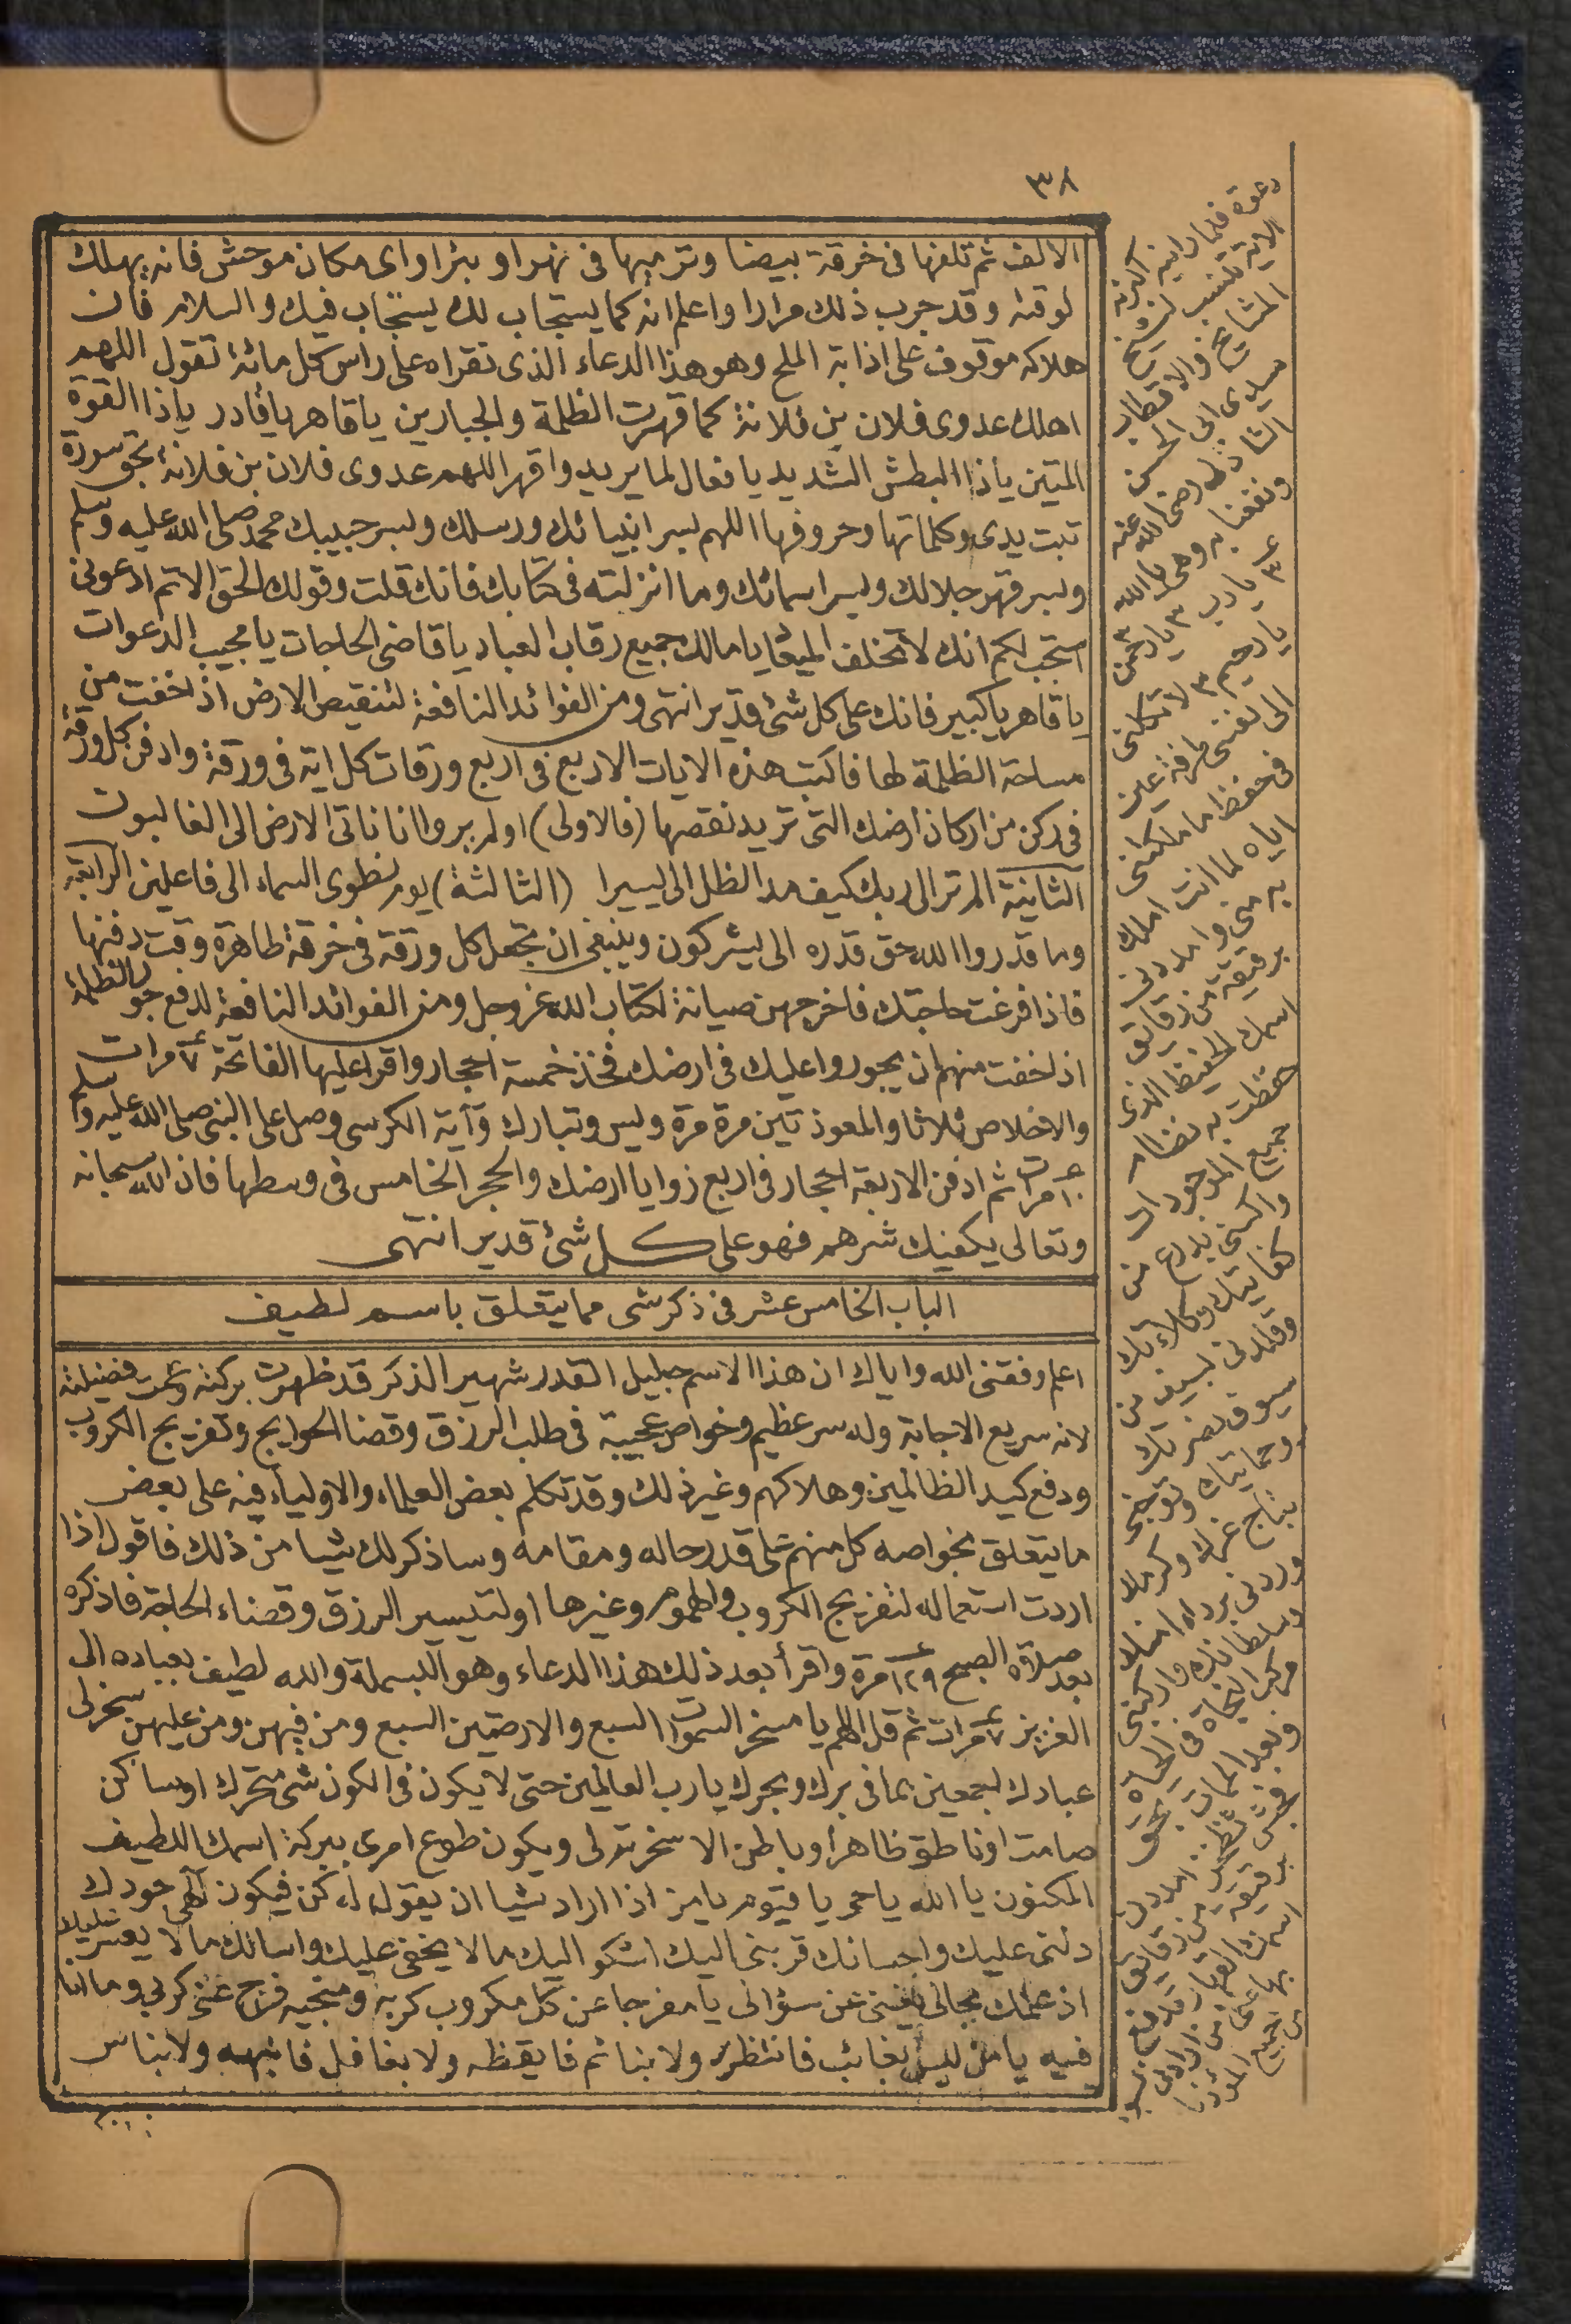 ٣٨
الالف ثم تلفها فى خرقة بيضا وترميها فى نهر او بئر او اى مكان موحش فانه يهلك
لوقته وقد جرب ذلك مرارا واعلم انه كما يستجاب لك يستجاب فيك والسلام فان
هلاكه موقوف على اذابة الملح وهو هذا الدعاء الذى تقراه على راس كل مائة تقول اللهم
اهلك عدوى فلان بن فلانة كما قهرت الظلمة والجبارين يا قاهر يا قادر يا ذا القوة
المتين يا ذا البطش الشديد يا فعال لما يريد واقهر اللهم عدوى فلان بن فلانة بحق سورة
تبت يدى وكلماتها وحروفها اللهم بسر انبيائك ورسلك وبسر حبيبك محمد صلى الله عليه وسلم
وبسر قهر جلالك وبسر اسمائك وما انزلته فى كتابك فانك قلت وقولك الحق الاتم ادعونى
استجب لكم انك لا تخلف الميعاد يا مالك جميع رقاب العباد يا قاضى الحاجات يا مجيب الدعوات
يا قاهر يا كبير فانك على كل شئ قدير انتهى ومن الفوائد النافعة لتنقيص الارض اذا خفت من
مساحة الظلمة لها فاكتب هذه الايات الاربع فى اربع ورقات كل اية فى ورقة وادفن كل ورقة
فى ركن من اركان ارضك التى تريد نقصها (فالاولى) اولم يروا انا ناتى الارض الى الغالبون
الثانية الم تر الى ربك كيف مد الظل الى يسيرا (الثالثة) يوم نطوى السماء الى فاعلين الرابعة
وما قدروا الله حق قدره الى يشركون وينبغى ان تجعل كل ورقة فى خرقة طاهرة وقت دفنها
فاذا فرغت حاجتك فاخرجهن صيانة لكتاب الله عز وجل ومن الفوائد النافعة لدفع جور الظلمة
اذا خفت منهم ان يجوروا عليك فى ارضك فخذ خمسة احجار واقرا عليها الفاتحة ٧ مرات
والاخلاص ثلاثا والمعوذتين مرة مرة ويس وتبارك وآية الكرسى وصل على النبى صلى الله عليه وسلم
١٠ مرات ثم ادفن الاربعة احجار فى اربع زوايا ارضك والحجر الخامس فى وسطها فان الله سبحانه
وتعالى يكفيك شرهم فهو على كل شئ قدير انتهى
الباب الخامس عشر فى ذكر شى مما يتعلق باسم لطيف
اعلم وفقنى الله واياك ان هذا الاسم جليل القدر شهير الذكر قد ظهرت بركته وعمت فضيلته
لانه سريع الاجابة وله سر عظيم وخواص عجيبة فى طلب الرزق وقضا الحوايج وتفريج الكروب
ودفع كيد الظالمين وهلاكهم وغير ذلك وقد تكلم بعض العلماء والاولياء فيه على بعض
ما يتعلق بخواصه كل منهم على قدر حاله ومقامه وساذكر لك شيا من ذلك فاقول اذا
اردت استعماله لتفريج الكروب والهموم وغيرها او لتيسير الرزق وقضاء الحاجة فاذكره
بعد صلاة الصبح ١٢٩ مرة واقرأ بعد ذلك هذا الدعاء وهو البسملة والله لطيف بعباده الى
العزيز ٧ مرات ثم قل اللهم يا مسخر السموات السبع والارضين السبع ومن فيهن ومن عليهن سخر لى
عبادك اجمعين بما فى برك وبحرك يا رب العالمين حتى لا يكون فى الكون شئ متحرك او ساكن
صامت او ناطق ظاهر او باطن الا سخرته لى ويكون طوع امرى ببركة اسمك اللطيف
المكنون يا الله يا حى يا قيوم يا من اذا اراد شيا ان يقول له كن فيكون الهى جودك
دلنى عليك واحسانك قربنى اليك اشكو اليك ما لا يخفى عليك واسالك ما لا يعسر عليك
اذ علمك بحالى يغنى عن سؤالى يا مفرجا عن كل مكروب كربه ومنجيه فرج عنى كربى وما انا
فيه يا من ليس بغائب فانتظره ولا بنائم فايقظه ولا بغافل فانبهه ولا بناس
دعوة فلما راينه اكبرنه
الاية تنسب لشيخ
المشايخ والاقطاب
سيدى ابى الحسن
الشاذلى رضى الله عنه
ونفعنا به وهى يا الله
٣ يا رب ٣ يا رحمن ٣
يا رحيم ٣ لا تكلنى
الى نفسى طرفة عين
فى حفظ ما ملكتنى
اياه لما انت املك
به منى وامددنى
برقيقة من رقايق
اسمك الحفيظ الذى
حفظت به نظام
جميع الموجودات
واكسنى بدرع من
كفايتك وكلاءتك
وقلدنى بسيف من
سيوف نصرتك
وحمايتك وتوجنى
بتاج عزك وكرمك
وردنى برداء منك
وسلطانك واركبنى
مركب النجاة فى الحياة
وبعد الممات بحق
فجش ثظخز امددنى
برقيقة من رقايق
اسمك القهار تدفع
بها عنى من ارادنى بسوء
من جميع المؤذيات